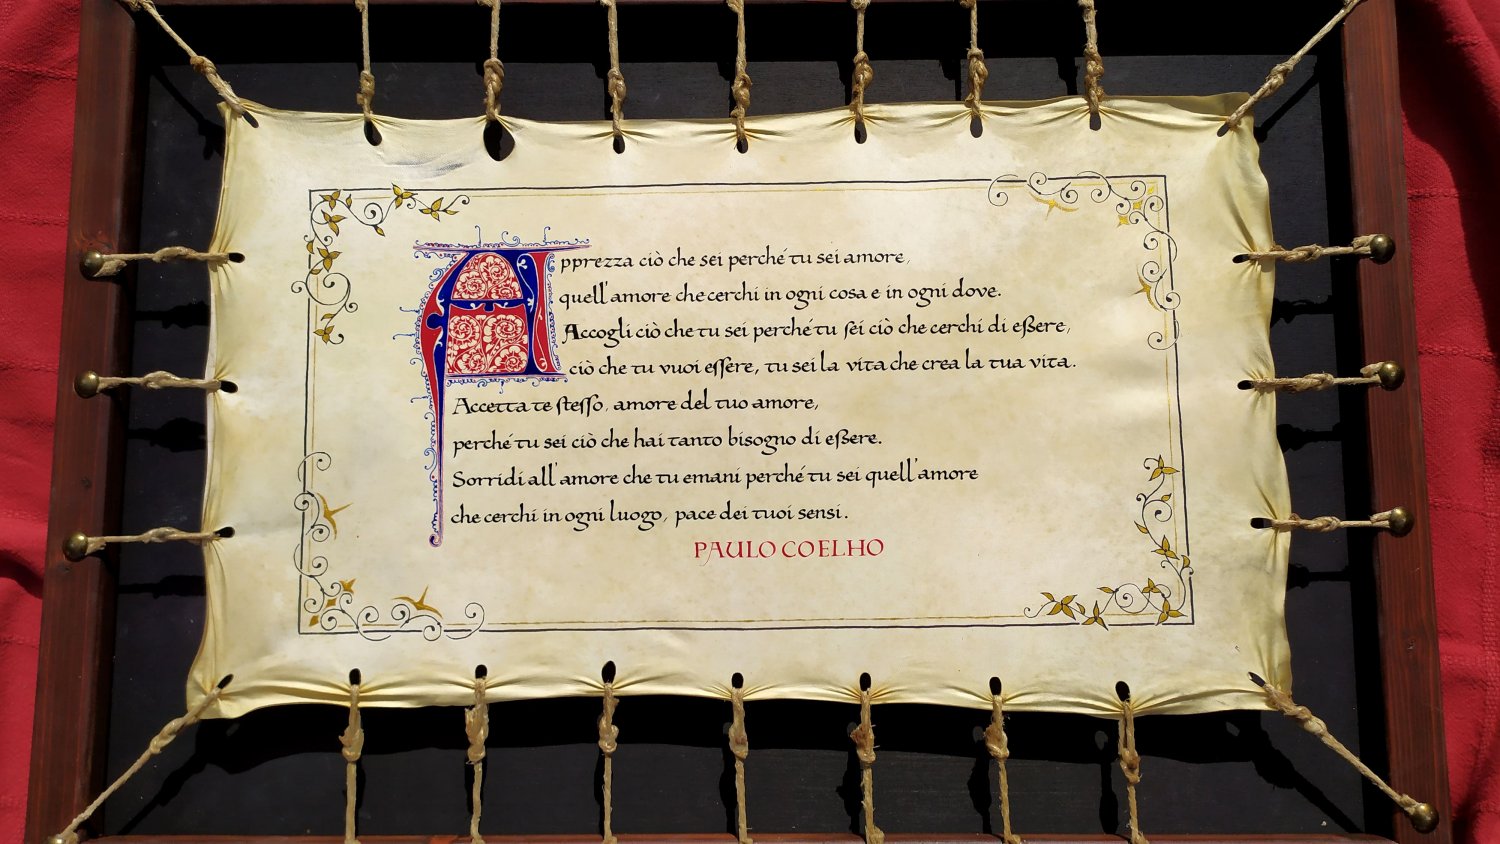 Apprezza ciò che sei perché tu sei amore,
quell'amore che cerchi in ogni cosa e in ogni dove.
Accogli ciò che tu sei perché tu sei ciò che cerchi di eßere,
ciò che tu vuoi essere, tu sei la vita che crea la tua vita.
Accetta te stesso, amore del tuo amore,
perché tu sei ciò che hai tanto bisogno di eßere.
Sorridi all'amore che tu emani perché tu sei quell'amore
che cerchi in ogni luogo, pace dei tuoi sensi.
PAULO COELHO